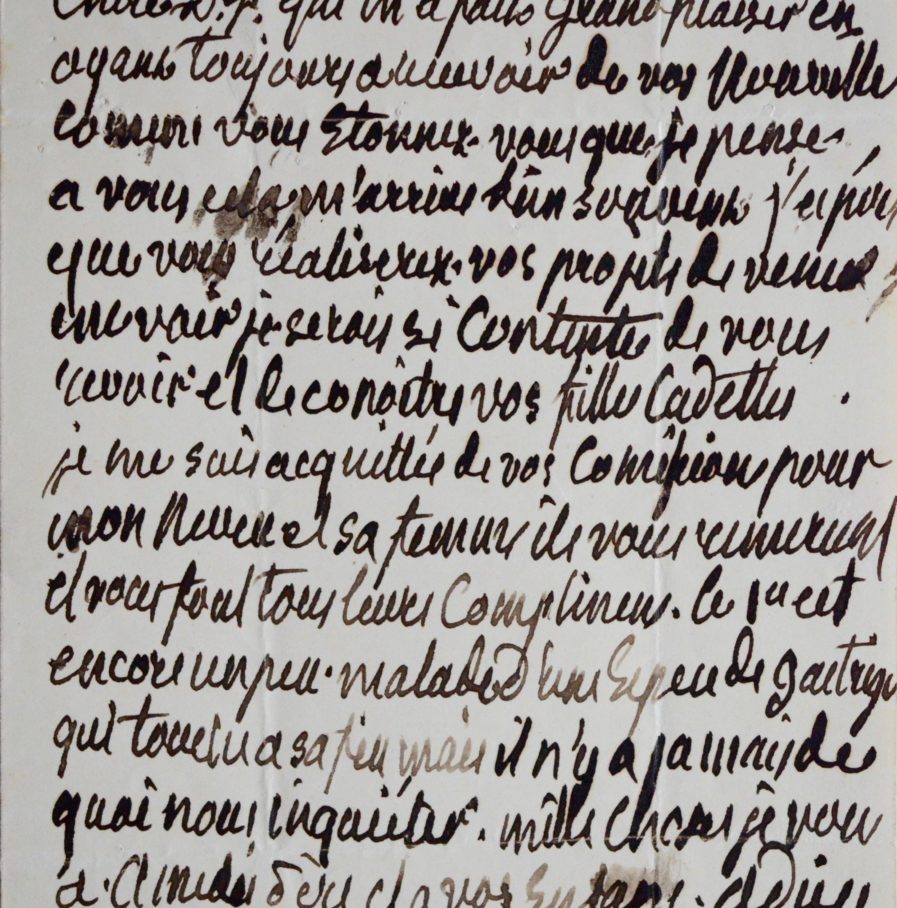 qui m'a fait Grand plaisir en
ayant toujours a recevoir de vos Nouvelle
coment vous Etonnez vous que je pense
a vous cela m'arrive bien souvent j'espere
que vous réaliserez vos projets de venir
me voir je serois si Contente de vous
revoir et de conoitre vos filles Cadettes
je me suis acquittée de vos Comission pour
mon Neveu et sa femme ils vous remercient
et vous font tous leurs Complimens. le 1er est
encore un peu malade d'une Espece de
qui touche a sa fin mais il n'y a jamais de
quoi nous inquiéter. mille choses je vous
a et a vos Enfans. adieu